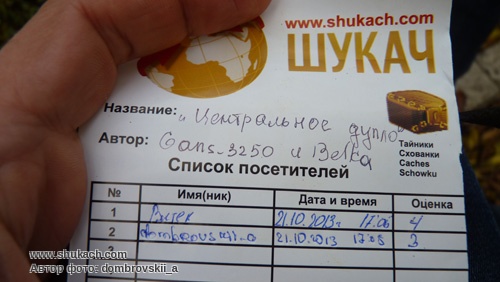 www.shukach.com
ШУКАЧ
Название: "Центральное дупло"
Автор: Gans_3250 и Belka
Тайники
Схованки
Caches
Schowku
Список посетителей
№ Имя(ник) Дата и время Оценка
1 Витек 21.10.2013г 17:06 4
2 21.10.2013 3
3
www.shukach.com
Автор фото: dombrovskii_a